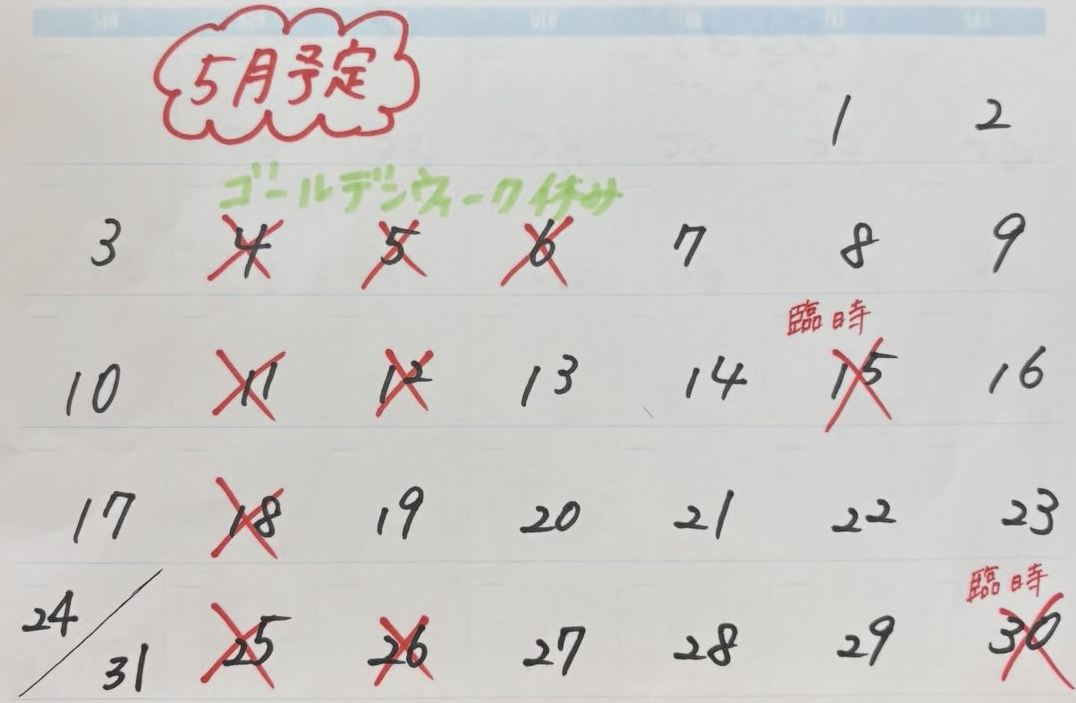 5月予定
1 2
ゴールデンウィーク休み
3 4 5 6 7 8 9
臨時
10 11 12 13 14 15 16
17 18 19 20 21 22 23
臨時
24/31 25 26 27 28 29 30